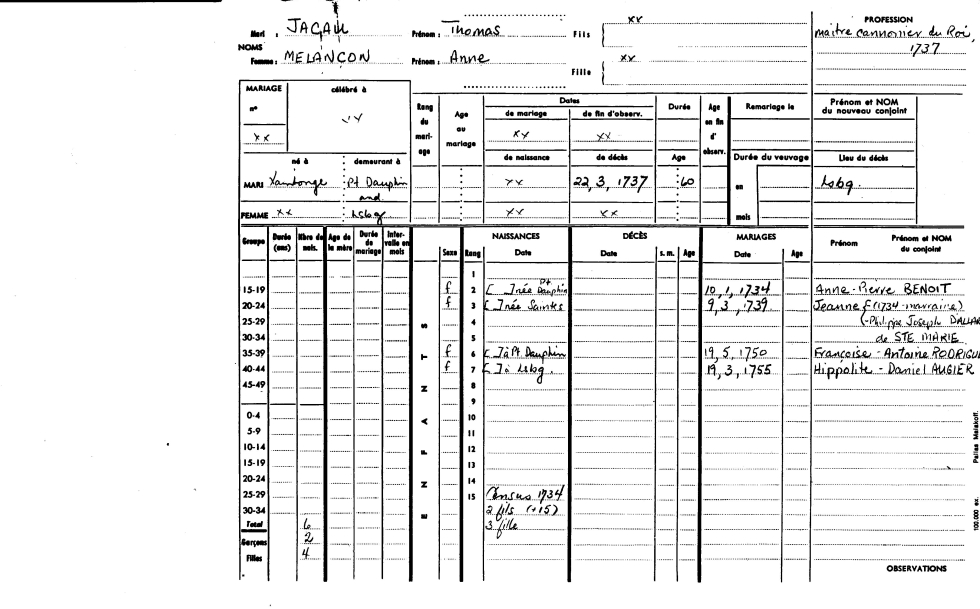 Mari : JACAU Prénom : Thomas Fils xx PROFESSION
maitre cannonier du Roi,
1737
NOMS
Femme : MELANÇON Prénom : Anne Fille xx
MARIAGE célébré à
n°
xx
Rang du mari-age
Age au mariage
Dates
de mariage de fin d'observ.
xx xx
Durée
Age en fin d'observ.
Remariage le
Prénom et NOM du nouveau conjoint
né à demeurant à de naissance de décès Age Durée du veuvage Lieu du décès
MARI Xaintonge Pt Dauphin and xx 22, 3, 1737 60 en Lsbg.
FEMME xx Lsbg xx xx mois
Groupe Durée (ans) Nbre de nais. Age de la mère Durée de mariage Inter-valle en mois
ENFANTS
Sexe Rang
NAISSANCES Date
DÉCÈS Date s. m. Age
MARIAGES Date Age
Prénom Prénom et NOM du conjoint
1
15-19 f 2 [ ] née Pt Dauphin 10, 1, 1734 Anne - Pierre BENOIT
20-24 f 3 [ ] née Saintes 9, 3, 1739 Jeanne f (1734 - marraine)
25-29 4 (- Philippe Joseph D'ALLAR
30-34 5 de STE MARIE
35-39 f 6 [ ] à Pt Dauphin 19, 5, 1750 Françoise - Antoine RODRIGUE
40-44 f 7 [ ] à Lsbg. 19, 3, 1755 Hippolite - Daniel AUGIER
45-49 8
9
0-4 10
5-9 11
10-14 12
15-19 13
20-24 14
25-29 15 Census 1734
30-34 2 fils (+15)
Total 6 3 fille
Garçons 2
Filles 4
OBSERVATIONS
100.000 ex. Pallas Malakoff.